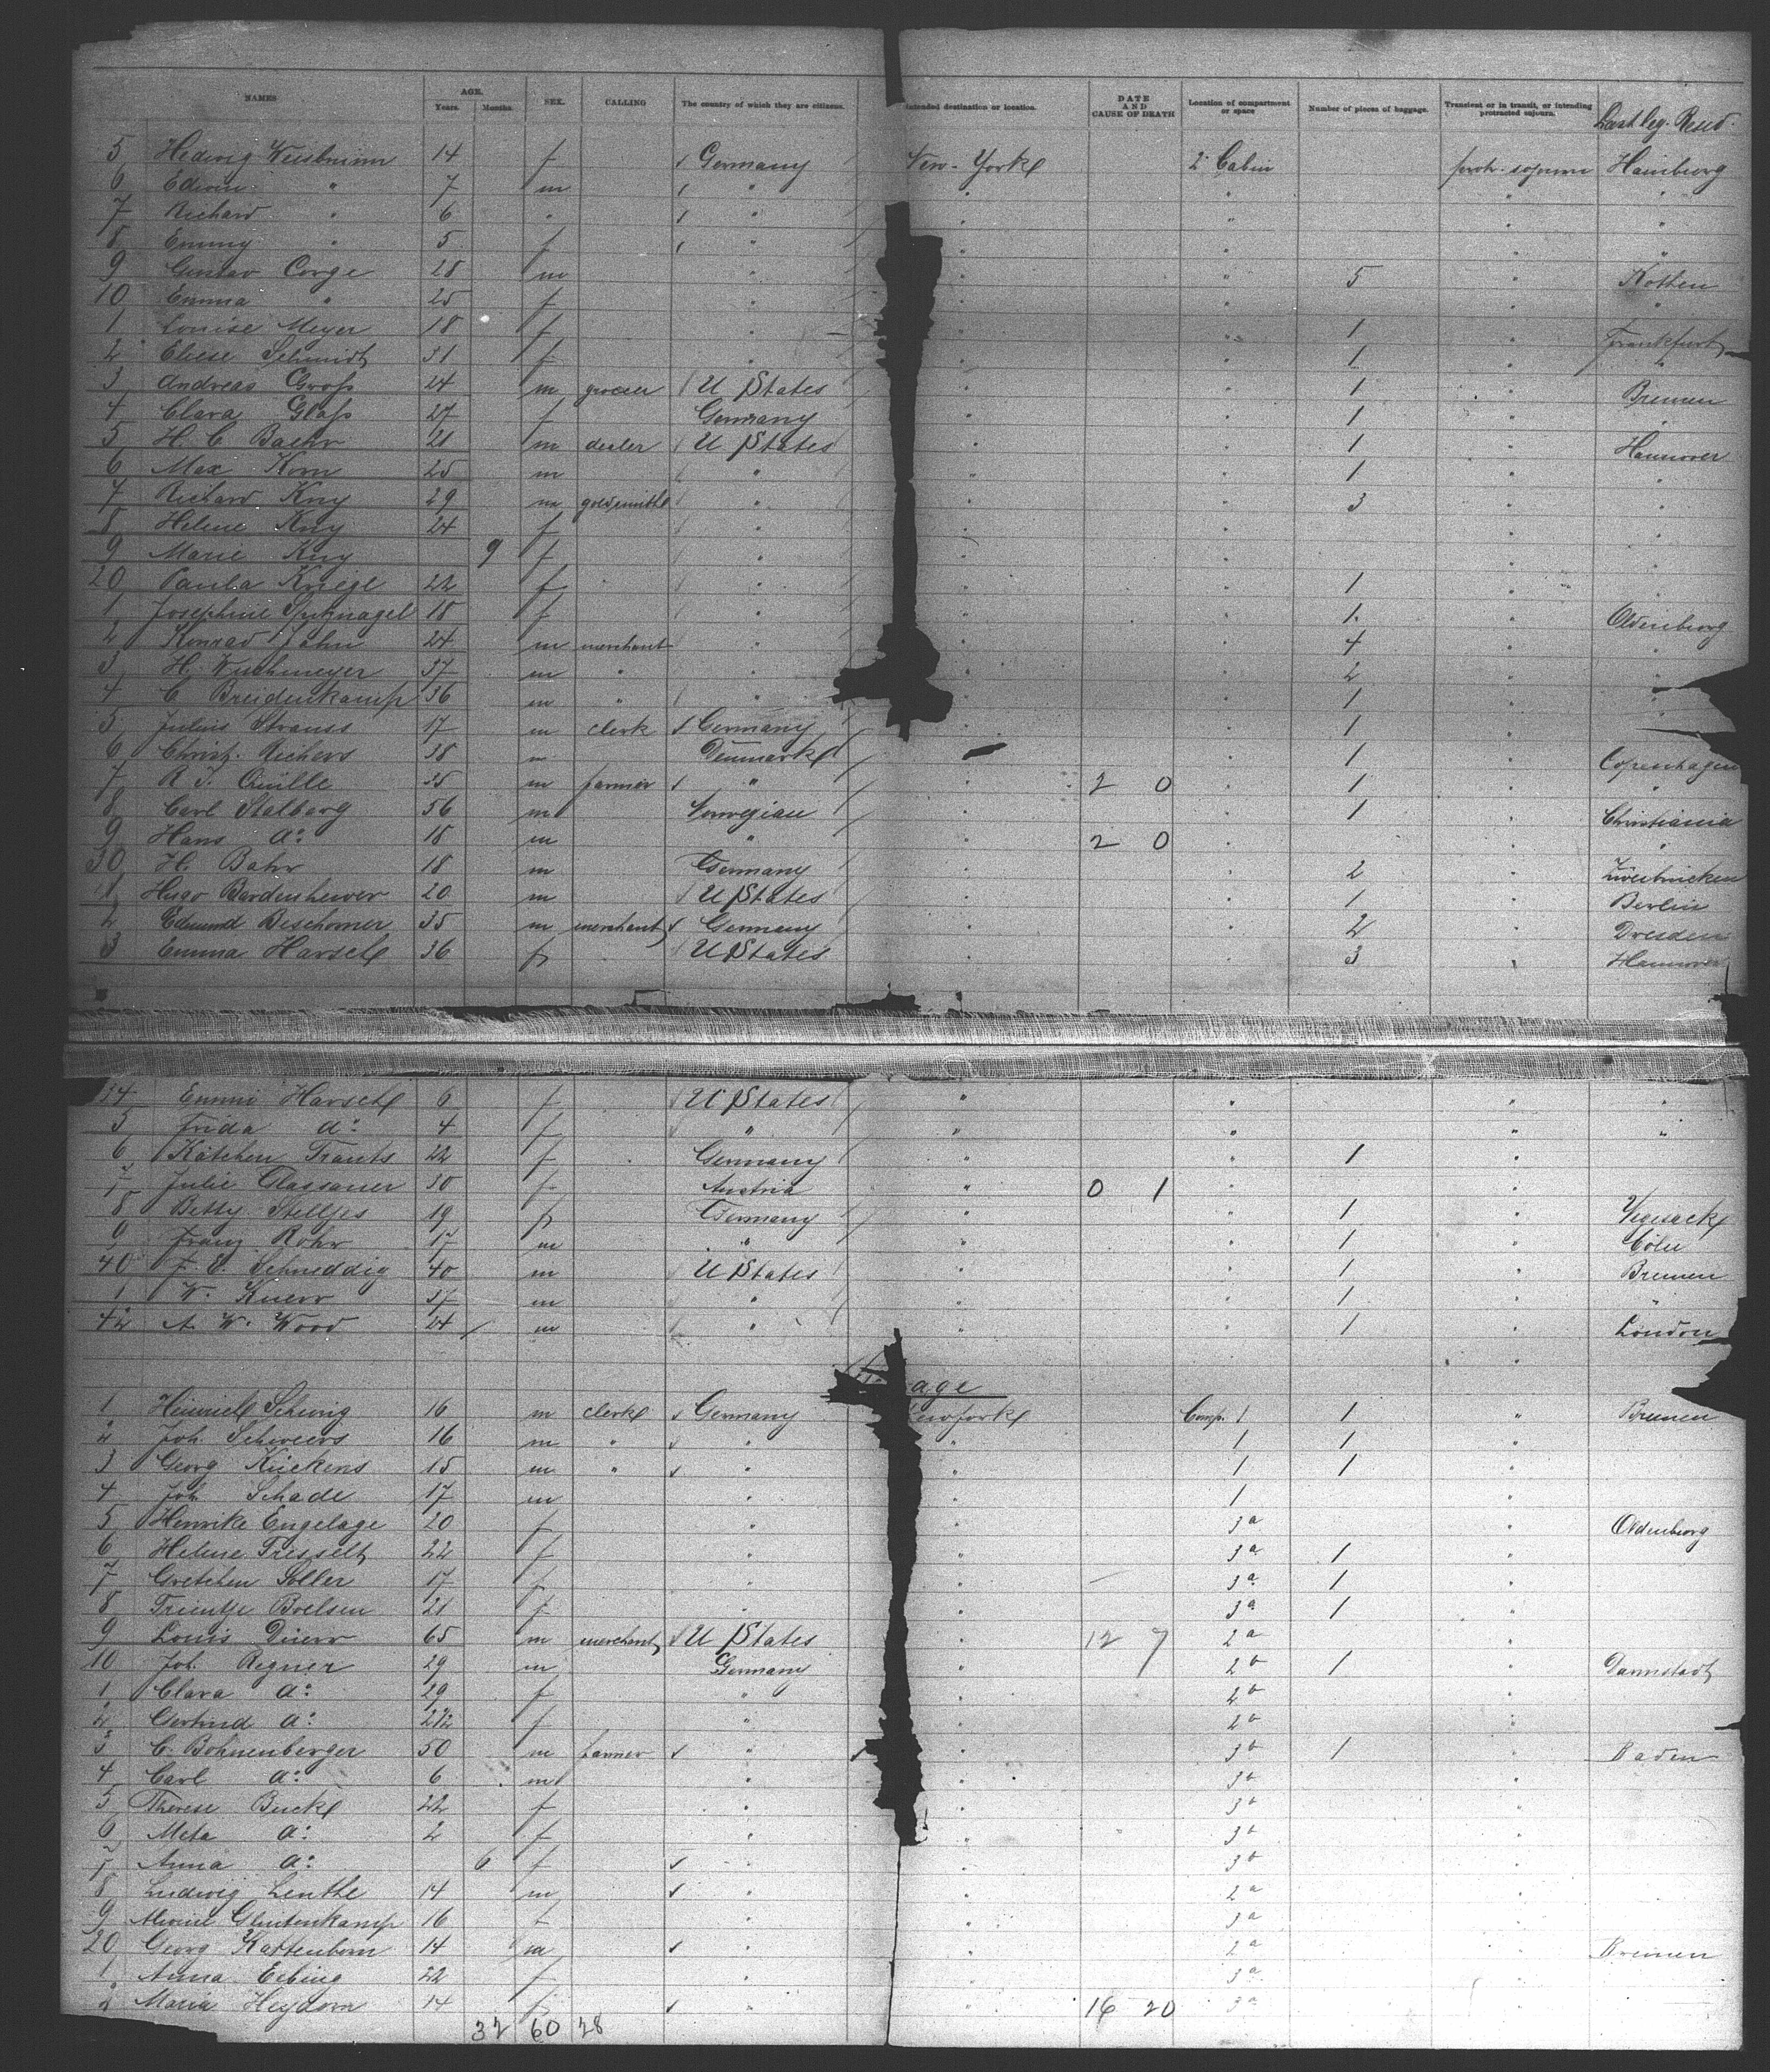 NAMES AGE. Years. Months. SEX. CALLING The country of which they are citizens. Intended destination or location. DATE AND CAUSE OF DEATH Location of compartment or space Number of pieces of baggage. Transient or in transit, or intending protracted sojourn. Last leg. Resid.
5 Hedwig 14 f Germany New-York 2 Cabin Hamburg
6 Edwin " 7 m " " " " "
7 Richard " 6 " " " " " "
8 Emmy " 5 f " " " " "
9 Gustav Corge 28 m " " " 5 " Köthen
10 Emma " 25 f " " " " "
1 Louise Meyer 18 f " " " 1 " Frankfurt
2 Eliese Schmidt 31 f " " " 1 " "
3 Andreas Groß 24 m grocer U States " " 1 " Bremen
4 Clara Glaß 27 f Germany " " 1 "
5 H. C Baehr 21 m dealer U States " " 1 " Hannover
6 Max Korn 25 m " " " 1 " "
7 Richard Kny 29 m goldsmith " " " 3 " "
8 Helene Kny 24 f " " " " "
9 Marie Kny 9 f " " " " "
20 Paula Kniege 22 f " " " 1 " "
1 Josephine 18 f " " " 1 " Oldenburg
2 Konrad John 24 m merchant " " " 4 " "
3 H. Wuchmeyer 37 m " " " " 2 " "
4 C Breidenkamp 36 m " " " " 1 " "
5 Julius Strauss 17 m clerk Germany " " 1 " "
6 Christ. Richers 38 m Denmark " " 1 " Copenhagen
7 R. J. 35 m farmer " " 2 0 " 1 " "
8 Carl Stalbarg 56 m Norwegian " " 1 " Christiania
9 Hans do 18 m " " 2 0 " " "
30 H. Bahr 18 m Germany " " 2 " Zweibrücken
1 Hugo Bardenhewer 20 m U States " " 1 " Berlin
2 Edmund Beschorner 35 m merchant Germany " " 2 " Dresden
3 Emma Harsch 36 f U States " " 3 " Hannover
34 Emmi Harsch 6 f U States " " " "
5 Frida do 4 f " " " " "
6 Kätchen Trauts 22 f Germany " " 1 "
7 Julie Glassauer 30 f Austria " 0 1 " "
8 Betty Stelljes 19 f Germany " " 1 " Vegesack
9 Franz Rohr 17 m " " " 1 " Cöln
40 F. C. Schneddig 40 m U States " " 1 " Bremen
1 W. Knerr 37 m " " " 1 " "
42 A. W. Wood 24 m " " " 1 " London
age
1 Heinrich Schwig 16 m clerk Germany New York Comp. 1 1 " Bremen
2 Joh. Schweers 16 m " " " 1 1 "
3 Georg Kückens 15 m " " " 1 1 "
4 Joh Schade 17 m " " 1 "
5 Henrike Engelage 20 f " " 3a " Oldenburg
6 Helene Tresselt 22 f " " 3a 1 "
7 Gretchen Soller 17 f " " 3a 1 "
8 Trientje Boelsen 21 f " " 3a 1 "
9 Louis Duerr 65 m merchant U States " 12 7 2a "
10 Joh. Regner 29 m Germany " 2b 1 " Darmstadt
1 Clara do 29 f " " 2b "
2 Gertrud do 2 1/2 f " " 2b "
3 C. Bohnenberger 50 m farmer " " 3b 1 " Baden
4 Carl do 6 m " " 3b "
5 Therese Buck 22 f " " 3b "
6 Meta do 2 f " " 3b "
7 Anna do 6 f " " 3b "
8 Ludwig Lenthe 14 m " " 2a "
9 Glintenkamp 16 f " " 3a "
20 Georg Kastenborn 14 m " " 2a " Bremen
1 Anna Ebbing 22 f " " 3a "
2 Maria Heydorn 14 f " " 16 20 3a
32 60 28